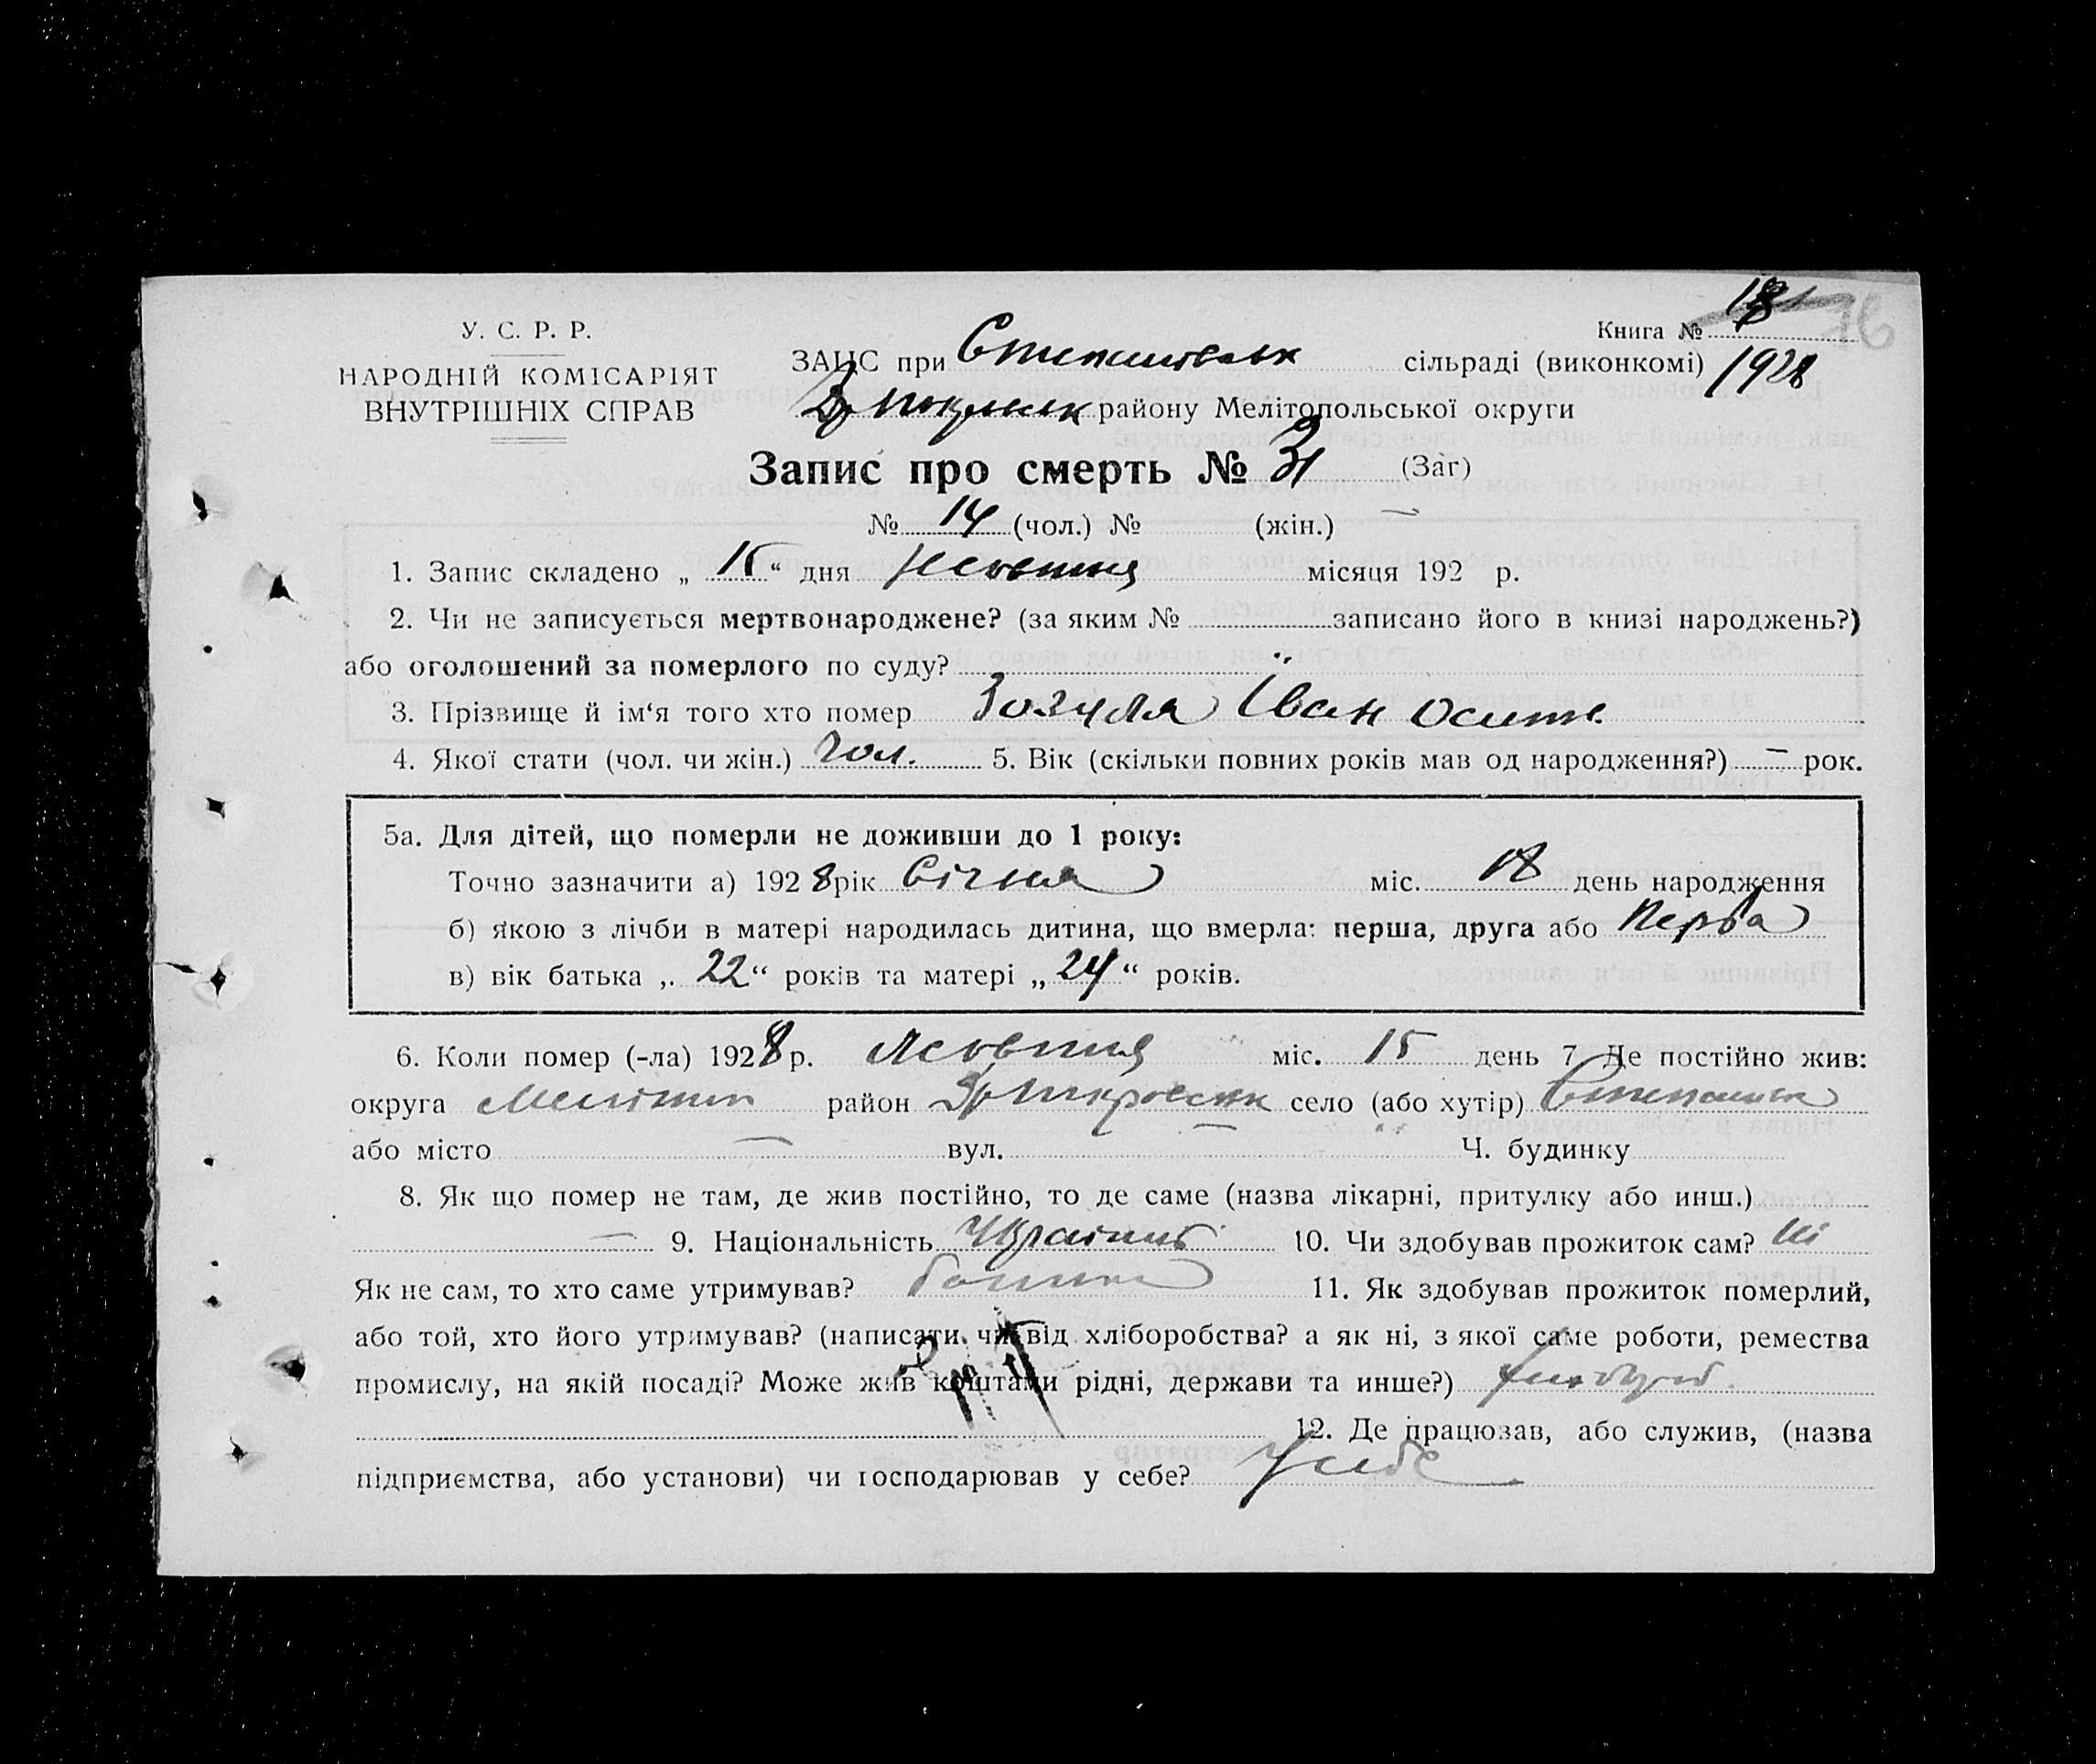 Книга № 18
У. С. Р. Р.
ЗАЦС при сільраді (виконкомі) 1928
НАРОДНІЙ КОМІСАРІЯТ
ВНУТРІШНІХ СПРАВ
району Мелітопольської округи
Запис про смерть № 31 (Заг)
№ 14 (чол.) № — (жін.)
1. Запис складено „ 15 “ дня місяця 192 р.
2. Чи не записується мертвонароджене? (за яким № записано його в книзі народжень?)
або оголошений за померлого по суду?
3. Прізвище й ім‘я того хто помер Зозуля Іван
4. Якої стати (чол. чи жін.) чол. 5. Вік (скільки повних років мав од народження?) — рок.
5а. Для дітей, що померли не доживши до 1 року:
Точно зазначити а) 1928 рік Січня міс. 18 день народження
б) якою з лічби в матері народилась дитина, що вмерла: перша, друга або Перва
в) вік батька „ 22 “ років та матері „ 24 “ років.
6. Коли помер (-ла) 1928 р. міс. 15 день 7. Де постійно жив:
округа район село (або хутір)
або місто — вул. — Ч. будинку
8. Як що помер не там, де жив постійно, то де саме (назва лікарні, притулку або инш.)
— 9. Національність 10. Чи здобував прожиток сам? ні
Як не сам, то хто саме утримував? 11. Як здобував прожиток померлий,
або той, хто його утримував? (написати чи від хліборобства? а як ні, з якої саме роботи, ремества
промислу, на якій посаді? Може жив коштами рідні, держави та инше?)
12. Де працював, або служив, (назва
підприємства, або установи) чи господарював у себе? У себе